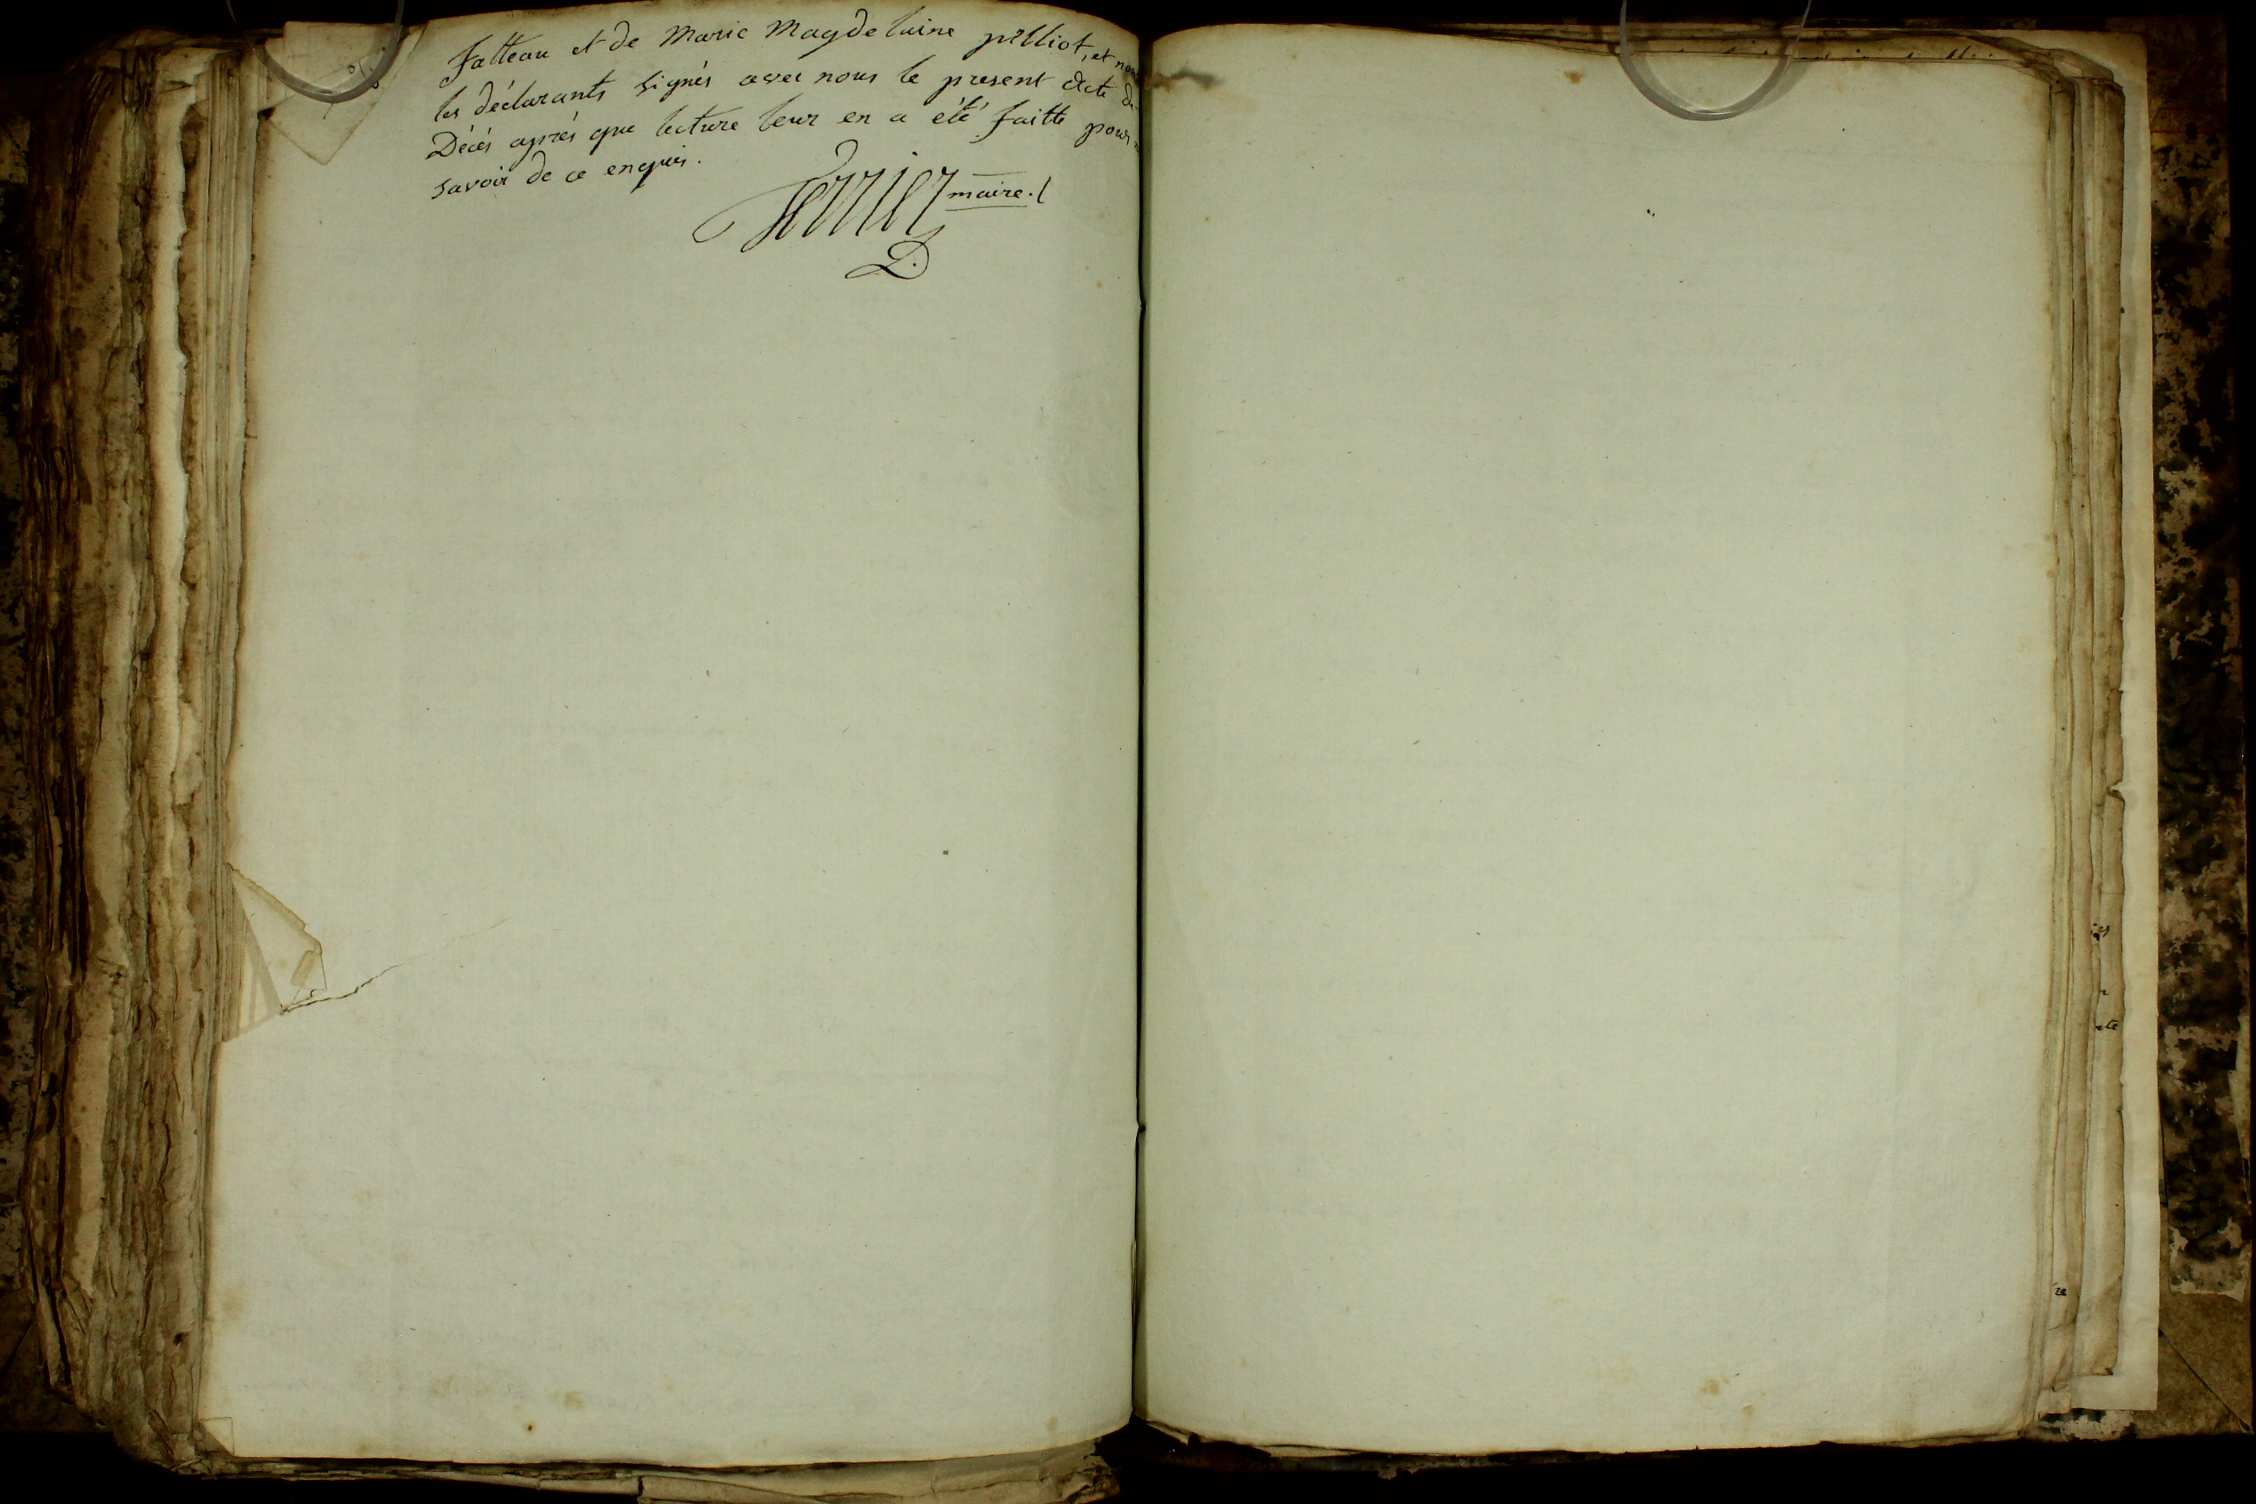 fatteau et de Marie Magdelaine pilliot, et non
les déclarants signés avec nous le present Acte de
Décés aprés que lecture leur en a été faitte pour
savoir de ce enquis.
Perrier maire.